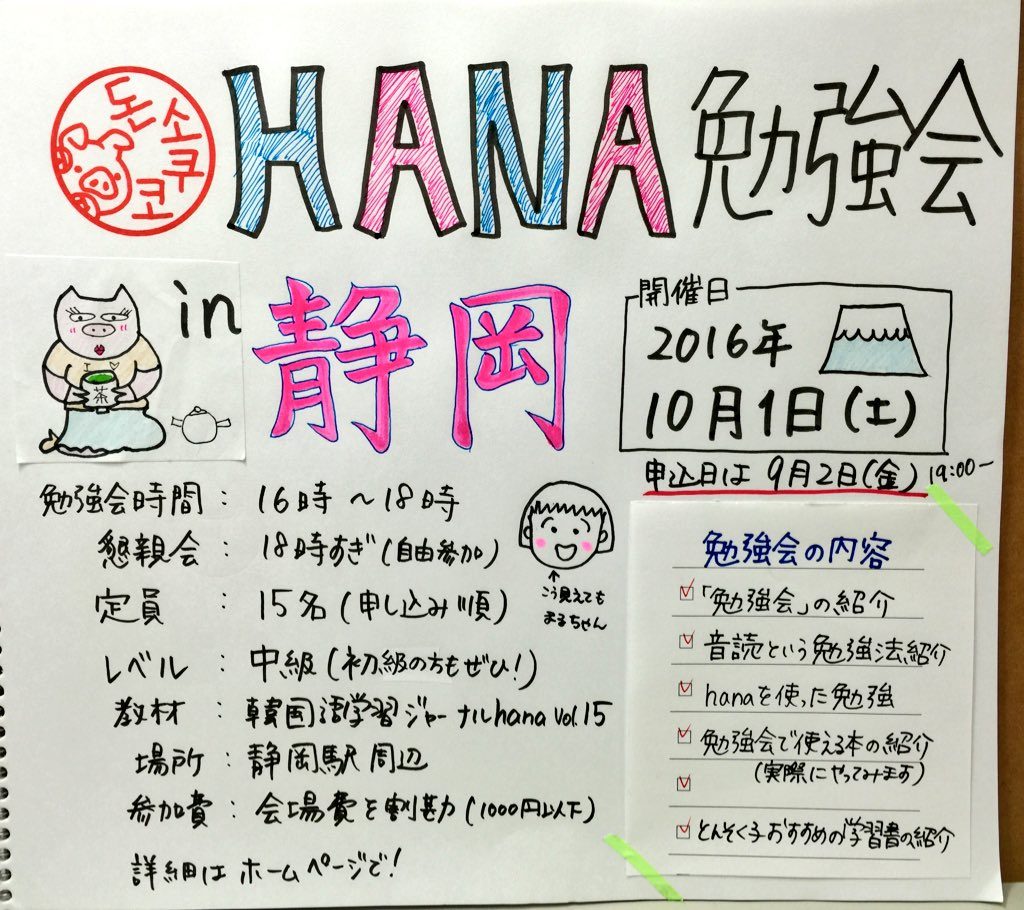 돈소쿠코
HANA勉強会
in 静岡
茶
開催日
2016年
10月1日(土)
申込日は 9月2日(金) 19:00~
勉強会時間 : 16時 ~18時
懇親会 : 18時すぎ(自由参加)
定員 : 15名(申し込み順)
レベル : 中級(初級の方もぜひ!)
教材 : 韓国語学習ジャーナルhana Vol.15
場所 : 静岡駅 周辺
参加費 : 会場費を割勘(1000円以下)
詳細は ホームページで!
↑
こう見えても
まるちゃん
勉強会の内容
「勉強会」の紹介
音読という勉強法紹介
hanaを使った勉強
勉強会で使える本の紹介
(実際にやってみます)
とんそく子おすすめの学習書の紹介